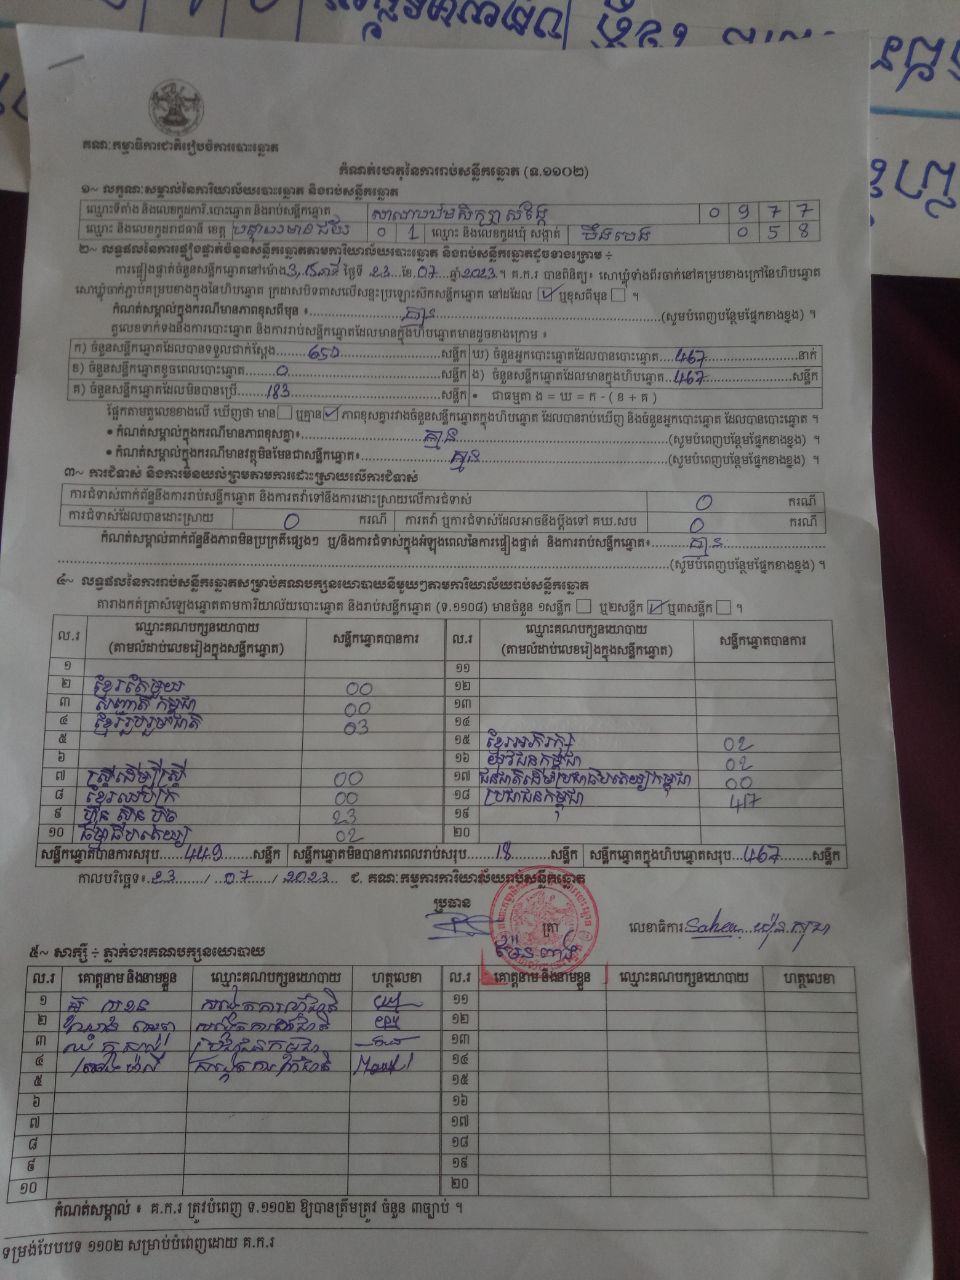 គណៈកម្មាធិការជាតិរៀបចំការបោះឆ្នោត
កំណត់ហេតុនៃការរាប់សន្លឹកឆ្នោត (ទ.១១០២)
១~ លក្ខណៈសម្គាល់នៃការិយាល័យបោះឆ្នោត និងរាប់សន្លឹកឆ្នោត
ឈ្មោះទីតាំង និងលេខកូដការិ.បោះឆ្នោត និងរាប់សន្លឹកឆ្នោត សាលាបឋមសិក្សា 0 9 7 7
ឈ្មោះ និងលេខកូដរាជធានី ខេត្ត បន្ទាយមានជ័យ 0 1 ឈ្មោះ និងលេខកូដឃុំ សង្កាត់ បឹងបេង 0 5 8
២~ លទ្ធផលនៃការផ្ទៀងផ្ទាត់ចំនួនសន្លឹកឆ្នោតតាមការិយាល័យបោះឆ្នោត និងរាប់សន្លឹកឆ្នោតដូចខាងក្រោម ÷
ការផ្ទៀងផ្ទាត់ចំនួនសន្លឹកឆ្នោតនៅម៉ោង 3,15នាទី ថ្ងៃទី 23 ខែ 07 ឆ្នាំ 2023 ។ គ.ក.រ បានពិនិត្យ៖ សោឃ្លុំទាំងពីរចាក់នៅគម្របខាងក្រៅនៃហិបឆ្នោត
សោឃ្លុំចាក់ភ្ជាប់គម្របខាងក្នុងនៃហិបឆ្នោត ក្រដាសបិទពាសលើសន្ទះប្រឡោះសឹកសន្លឹកឆ្នោត នៅដដែល ☑ ឬខុសពីមុន ☐ ។
កំណត់សម្គាល់ក្នុងករណីមានភាពខុសពីមុន ៖ គ្មាន (សូមបំពេញបន្ថែមផ្នែកខាងខ្នង) ។
តួលេខទាក់ទងនឹងការបោះឆ្នោត និងការរាប់សន្លឹកឆ្នោតដែលមានក្នុងហិបឆ្នោតមានដូចខាងក្រោម ៖
ក) ចំនួនសន្លឹកឆ្នោតដែលបានទទួលជាក់ស្តែង 650 សន្លឹក ឃ) ចំនួនអ្នកបោះឆ្នោតដែលបានបោះឆ្នោត 467 នាក់
ខ) ចំនួនសន្លឹកឆ្នោតខូចពេលបោះឆ្នោត 0 សន្លឹក ង) ចំនួនសន្លឹកឆ្នោតដែលមានក្នុងហិបឆ្នោត 467 សន្លឹក
គ) ចំនួនសន្លឹកឆ្នោតដែលមិនបានប្រើ 183 សន្លឹក • ជាធម្មតា ង = ឃ = ក - ( ខ + គ )
ផ្អែកតាមតួលេខខាងលើ ឃើញថា មាន ☐ ឬគ្មាន ☑ ភាពខុសគ្នារវាងចំនួនសន្លឹកឆ្នោតក្នុងហិបឆ្នោត ដែលបានរាប់ឃើញ និងចំនួនអ្នកបោះឆ្នោត ដែលបានបោះឆ្នោត ។
• កំណត់សម្គាល់ក្នុងករណីមានភាពខុសគ្នា៖ គ្មាន (សូមបំពេញបន្ថែមផ្នែកខាងខ្នង) ។
• កំណត់សម្គាល់ក្នុងករណីមានវត្ថុមិនមែនជាសន្លឹកឆ្នោត៖ គ្មាន (សូមបំពេញបន្ថែមផ្នែកខាងខ្នង) ។
៣~ ការជំទាស់ និងការមិនយល់ព្រមតាមការដោះស្រាយលើការជំទាស់
ការជំទាស់ពាក់ព័ន្ធនឹងការរាប់សន្លឹកឆ្នោត និងការតវ៉ាទៅនឹងការដោះស្រាយលើការជំទាស់ 0 ករណី
ការជំទាស់ដែលបានដោះស្រាយ 0 ករណី ការតវ៉ា ឬការជំទាស់ដែលអាចនឹងប្តឹងទៅ គឃ.សប 0 ករណី
កំណត់សម្គាល់ពាក់ព័ន្ធនឹងភាពមិនប្រក្រតីផ្សេងៗ ឬ/និងការជំទាស់ក្នុងអំឡុងពេលនៃការផ្ទៀងផ្ទាត់ និងការរាប់សន្លឹកឆ្នោត៖ គ្មាន
(សូមបំពេញបន្ថែមផ្នែកខាងខ្នង) ។
៤~ លទ្ធផលនៃការរាប់សន្លឹកឆ្នោតសម្រាប់គណបក្សនយោបាយនីមួយៗតាមការិយាល័យរាប់សន្លឹកឆ្នោត
តារាងកត់ត្រាសំឡេងឆ្នោតតាមការិយាល័យបោះឆ្នោត និងរាប់សន្លឹកឆ្នោត (ទ.១១០៨) មានចំនួន ១សន្លឹក ☐ ឬ២សន្លឹក ☑ ឬ៣សន្លឹក ☐ ។
ល.រ ឈ្មោះគណបក្សនយោបាយ (តាមលំដាប់លេខរៀងក្នុងសន្លឹកឆ្នោត) សន្លឹកឆ្នោតបានការ ល.រ ឈ្មោះគណបក្សនយោបាយ (តាមលំដាប់លេខរៀងក្នុងសន្លឹកឆ្នោត) សន្លឹកឆ្នោតបានការ
១ ១១
២ ខ្មែរតែមួយ 00 ១២
៣ សញ្ជាតិកម្ពុជា 00 ១៣
៤ ខ្មែររួបរួមជាតិ 03 ១៤
៥ ១៥ ខ្មែរអភិរក្ស 02
៦ ១៦ យុវជនកម្ពុជា 02
៧ ស្ត្រីដើម្បីស្ត្រី 00 ១៧ ជនជាតិដើមប្រជាធិបតេយ្យកម្ពុជា 00
៨ ខ្មែរឈប់ក្រ 00 ១៨ ប្រជាជនកម្ពុជា 417
៩ ហ៊្វុនស៊ិនប៉ិច 23 ១៩
១០ ធម្មាធិបតេយ្យ 02 ២០
សន្លឹកឆ្នោតបានការសរុប 449 សន្លឹក សន្លឹកឆ្នោតមិនបានការពេលរាប់សរុប 18 សន្លឹក សន្លឹកឆ្នោតក្នុងហិបឆ្នោតសរុប 467 សន្លឹក
កាលបរិច្ឆេទ៖ 23 / 07 / 2023 ជ. គណៈកម្មការការិយាល័យរាប់សន្លឹកឆ្នោត
ប្រធាន ត្រា លេខាធិការ
៥~ សាក្សី ÷ ភ្នាក់ងារគណបក្សនយោបាយ
ល.រ គោត្តនាម និងនាមខ្លួន ឈ្មោះគណបក្សនយោបាយ ហត្ថលេខា ល.រ គោត្តនាម និងនាមខ្លួន ឈ្មោះគណបក្សនយោបាយ ហត្ថលេខា
១ ១១
២ ១២
៣ ប្រជាជនកម្ពុជា ១៣
៤ ១៤
៥ ១៥
៦ ១៦
៧ ១៧
៨ ១៨
៩ ១៩
១០ ២០
កំណត់សម្គាល់ ៖ គ.ក.រ ត្រូវបំពេញ ទ.១១០២ ឱ្យបានត្រឹមត្រូវ ចំនួន ៣ច្បាប់ ។
ទម្រង់បែបបទ ១១០២ សម្រាប់បំពេញដោយ គ.ក.រ